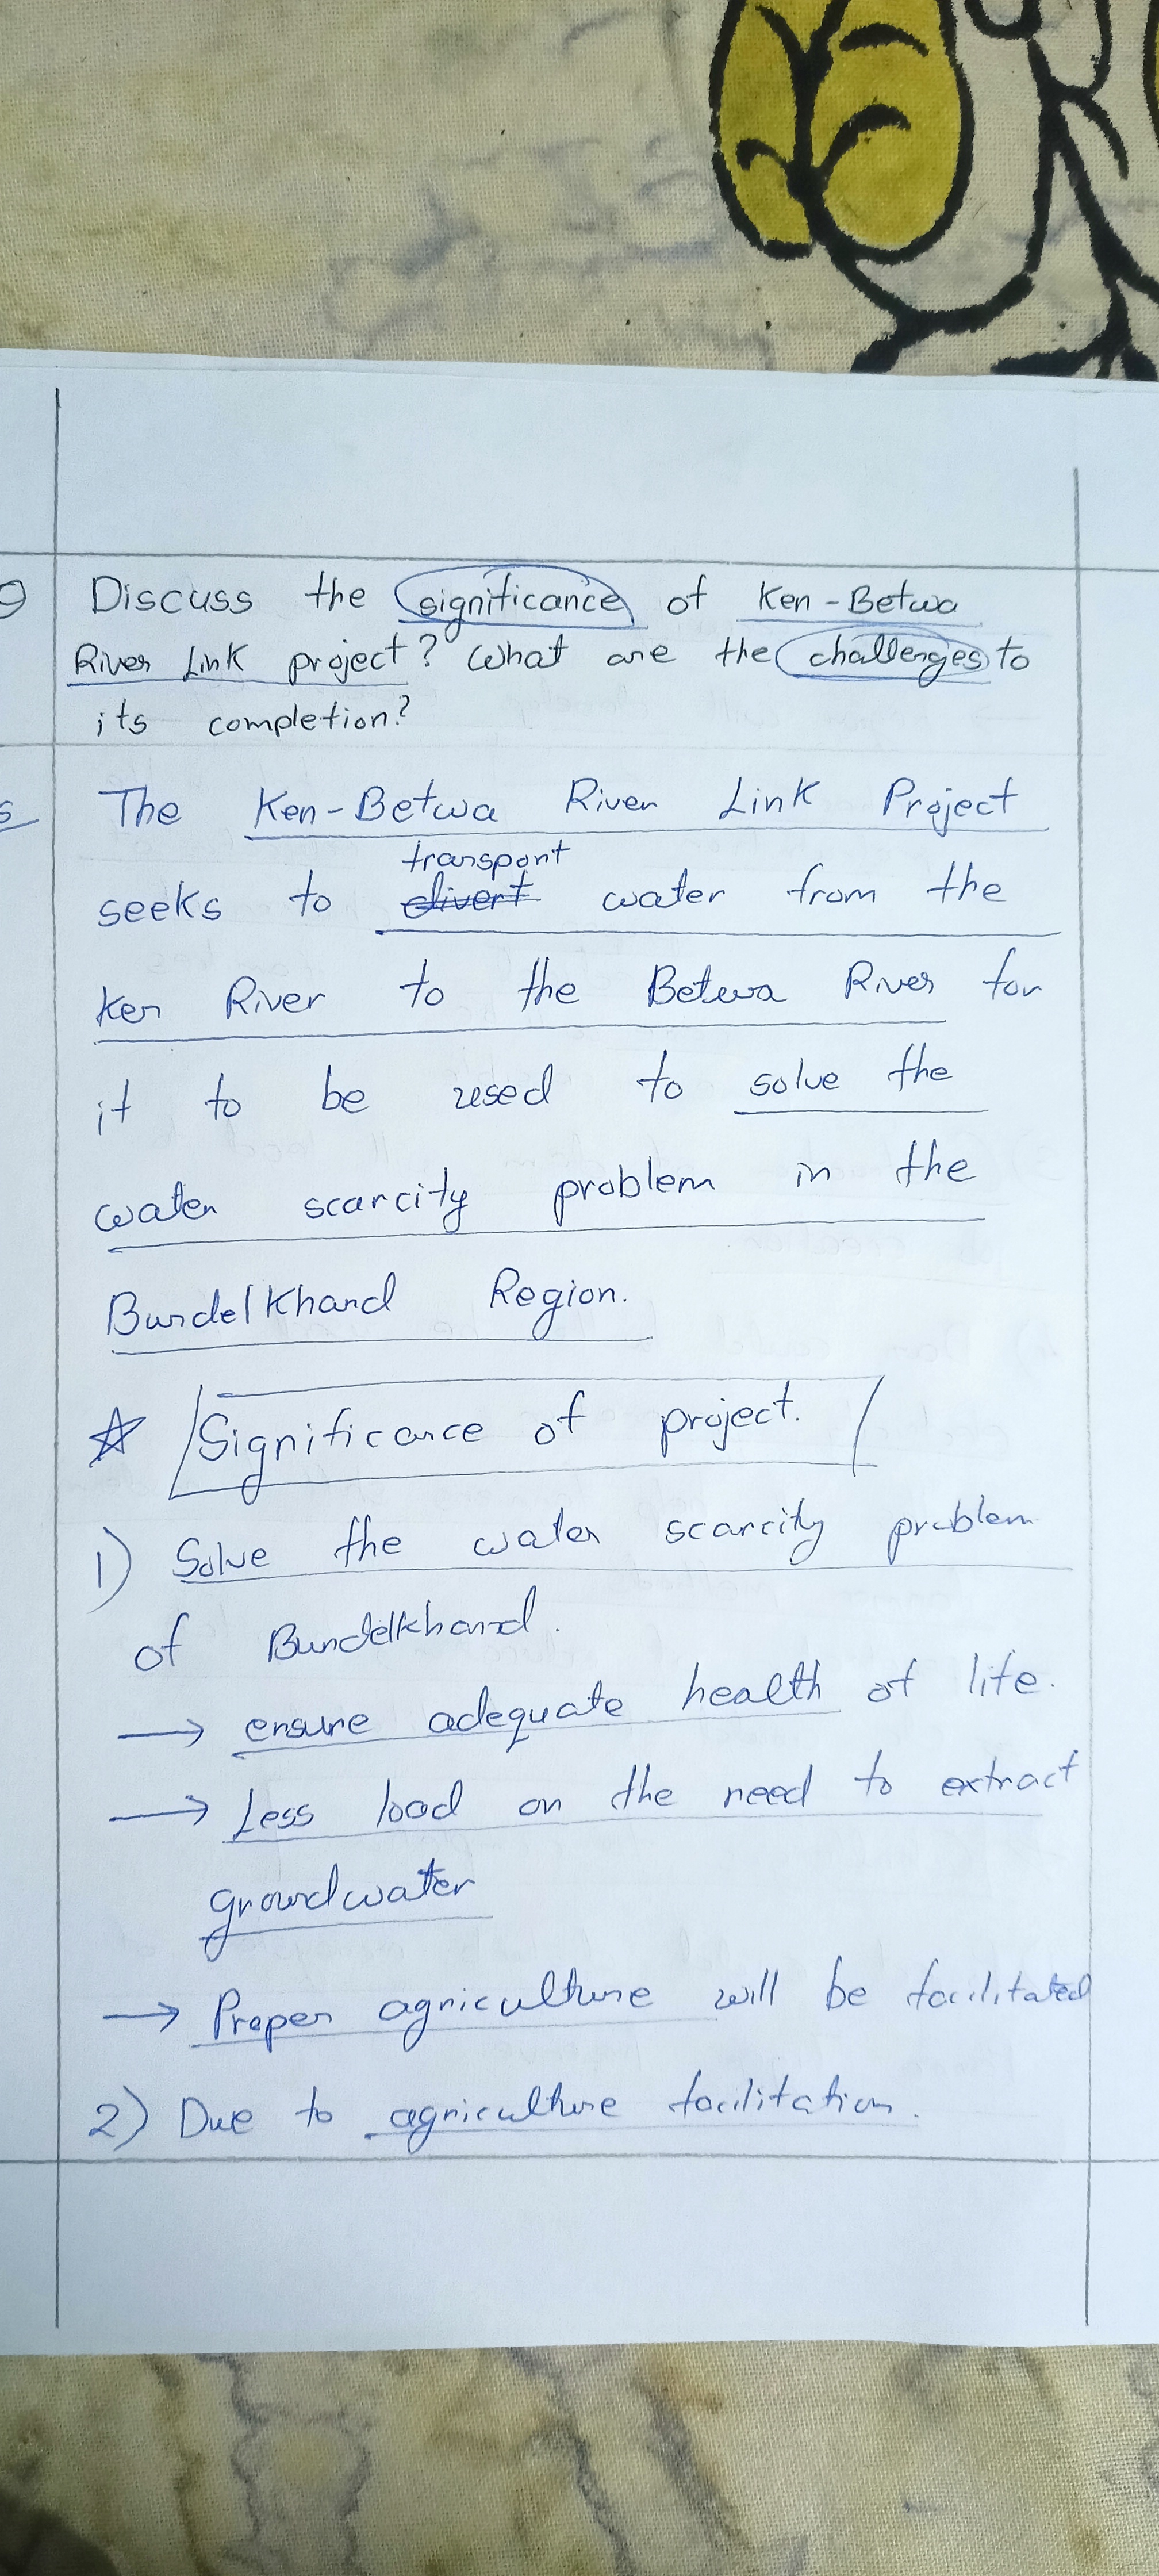 Discuss the significance of Ken-Betwa
River Link project? What are the challenges to
its completion?
The Ken-Betwa River Link Project
transport
seeks to divert water from the
Ken River to the Betwa River for
it to be used to solve the
water scarcity problem in the
Bundelkhand Region.
Significance of project.
1) Solve the water scarcity problem
of Bundelkhand.
→ ensure adequate health of life.
→ Less load on the need to extract
groundwater
→ Proper agriculture will be facilitated
2) Due to agriculture facilitation.